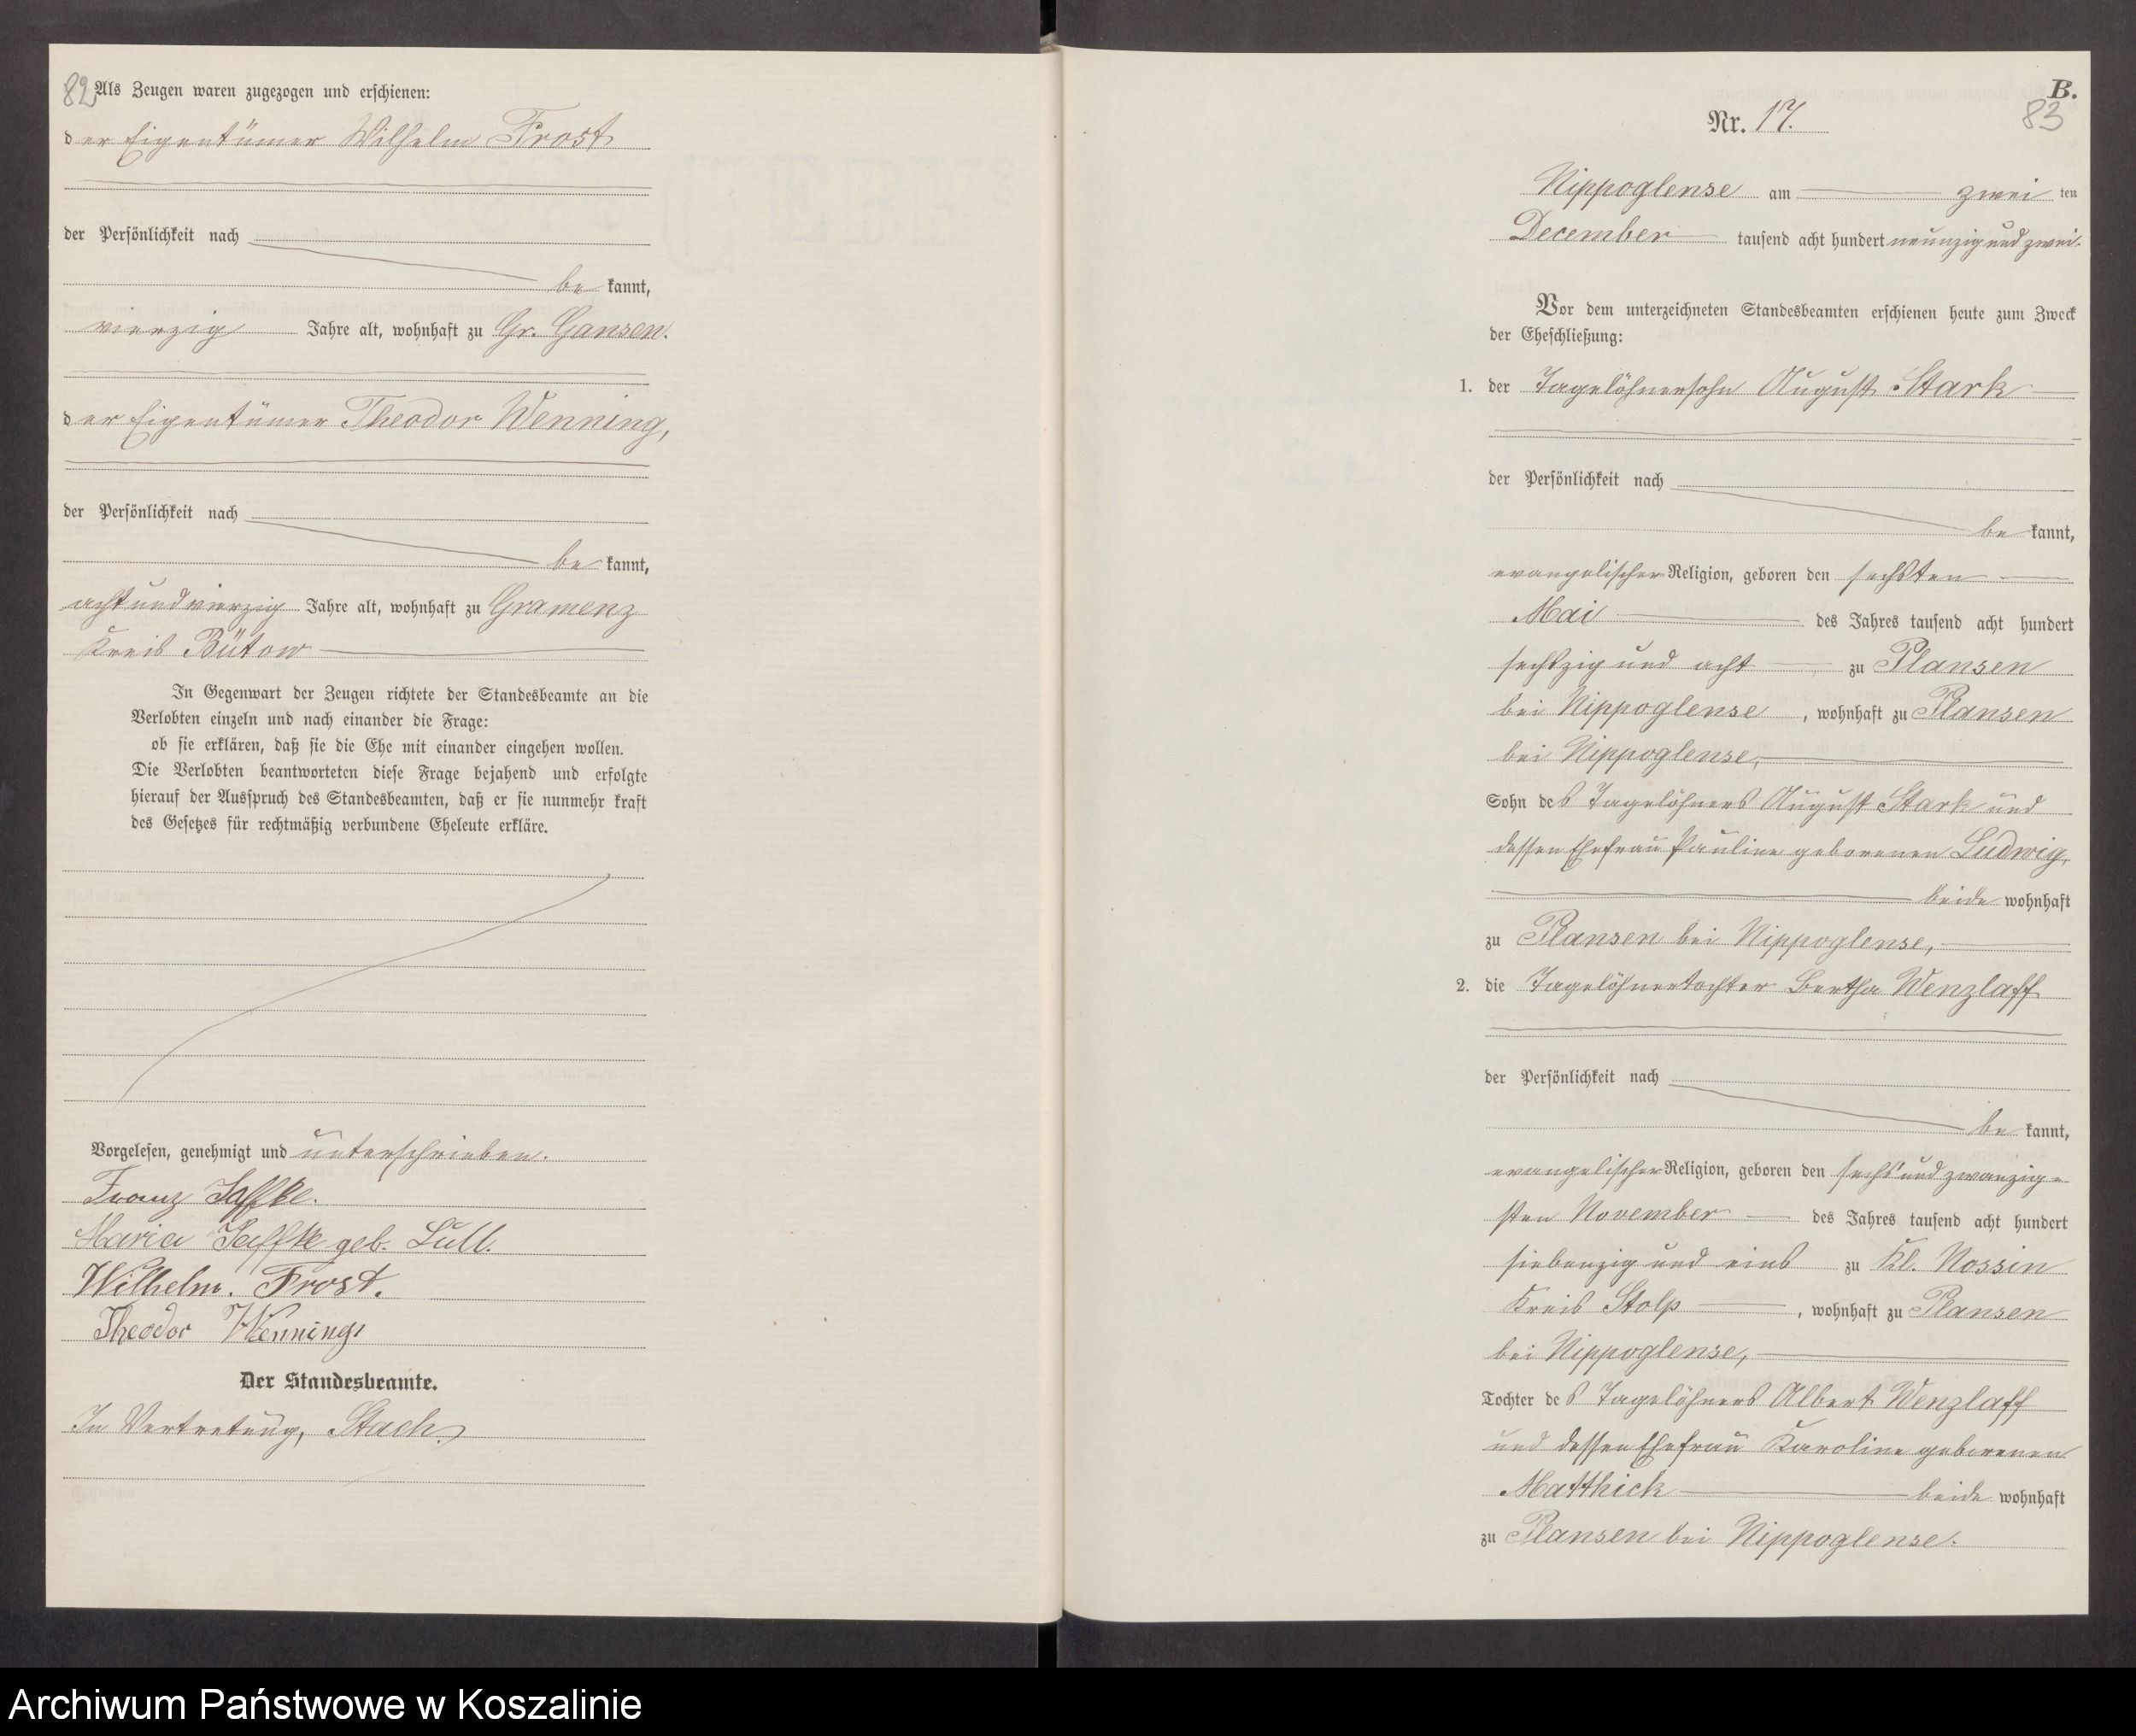 82
Als Zeugen waren zugezogen und erschienen:
der Eigentümer Wilhelm Frost
der Persönlichkeit nach
be kannt,
vierzig Jahre alt, wohnhaft zu Gr. Gansen.
der Eigentümer Theodor Wenning,
der Persönlichkeit nach
be kannt,
achtundvierzig Jahre alt, wohnhaft zu Gramenz
Kreis Bütow
In Gegenwart der Zeugen richtete der Standesbeamte an die
Verlobten einzeln und nach einander die Frage:
ob sie erklären, daß sie die Ehe mit einander eingehen wollen.
Die Verlobten beantworteten diese Frage bejahend und erfolgte
hierauf der Ausspruch des Standesbeamten, daß er sie nunmehr kraft
des Gesetzes für rechtmäßig verbundene Eheleute erkläre.
Vorgelesen, genehmigt und unterschrieben.
Franz Jaffke.
Maria Jaffke geb. Lüll.
Wilhelm. Frost.
Theodor Wenning
Der Standesbeamte.
In Vertretung, Stach.
B.
83
Nr. 17.
Nippoglense am zwei ten
December tausend acht hundert neunzig und zwei.
Vor dem unterzeichneten Standesbeamten erschienen heute zum Zweck
der Eheschließung:
1. der Tagelöhnersohn August Stark
der Persönlichkeit nach
be kannt,
evangelischer Religion, geboren den sechsten
Mai des Jahres tausend acht hundert
sechszig und acht zu Plansen
bei Nippoglense, wohnhaft zu Plansen
bei Nippoglense,
Sohn des Tagelöhners August Stark und
dessen Ehefrau Pauline geborenen Ludwig,
beide wohnhaft
zu Plansen bei Nippoglense,
2. die Tagelöhnertochter Bertha Wenzlaff
der Persönlichkeit nach
be kannt,
evangelischer Religion, geboren den sechs und zwanzig-
sten November des Jahres tausend acht hundert
siebenzig und eins zu Kl. Nossin
Kreis Stolp, wohnhaft zu Plansen
bei Nippoglense,
Tochter des Tagelöhners Albert Wenzlaff
und dessen Ehefrau Karoline geborenen
Matthick beide wohnhaft
zu Plansen bei Nippoglense.
Archiwum Państwowe w Koszalinie